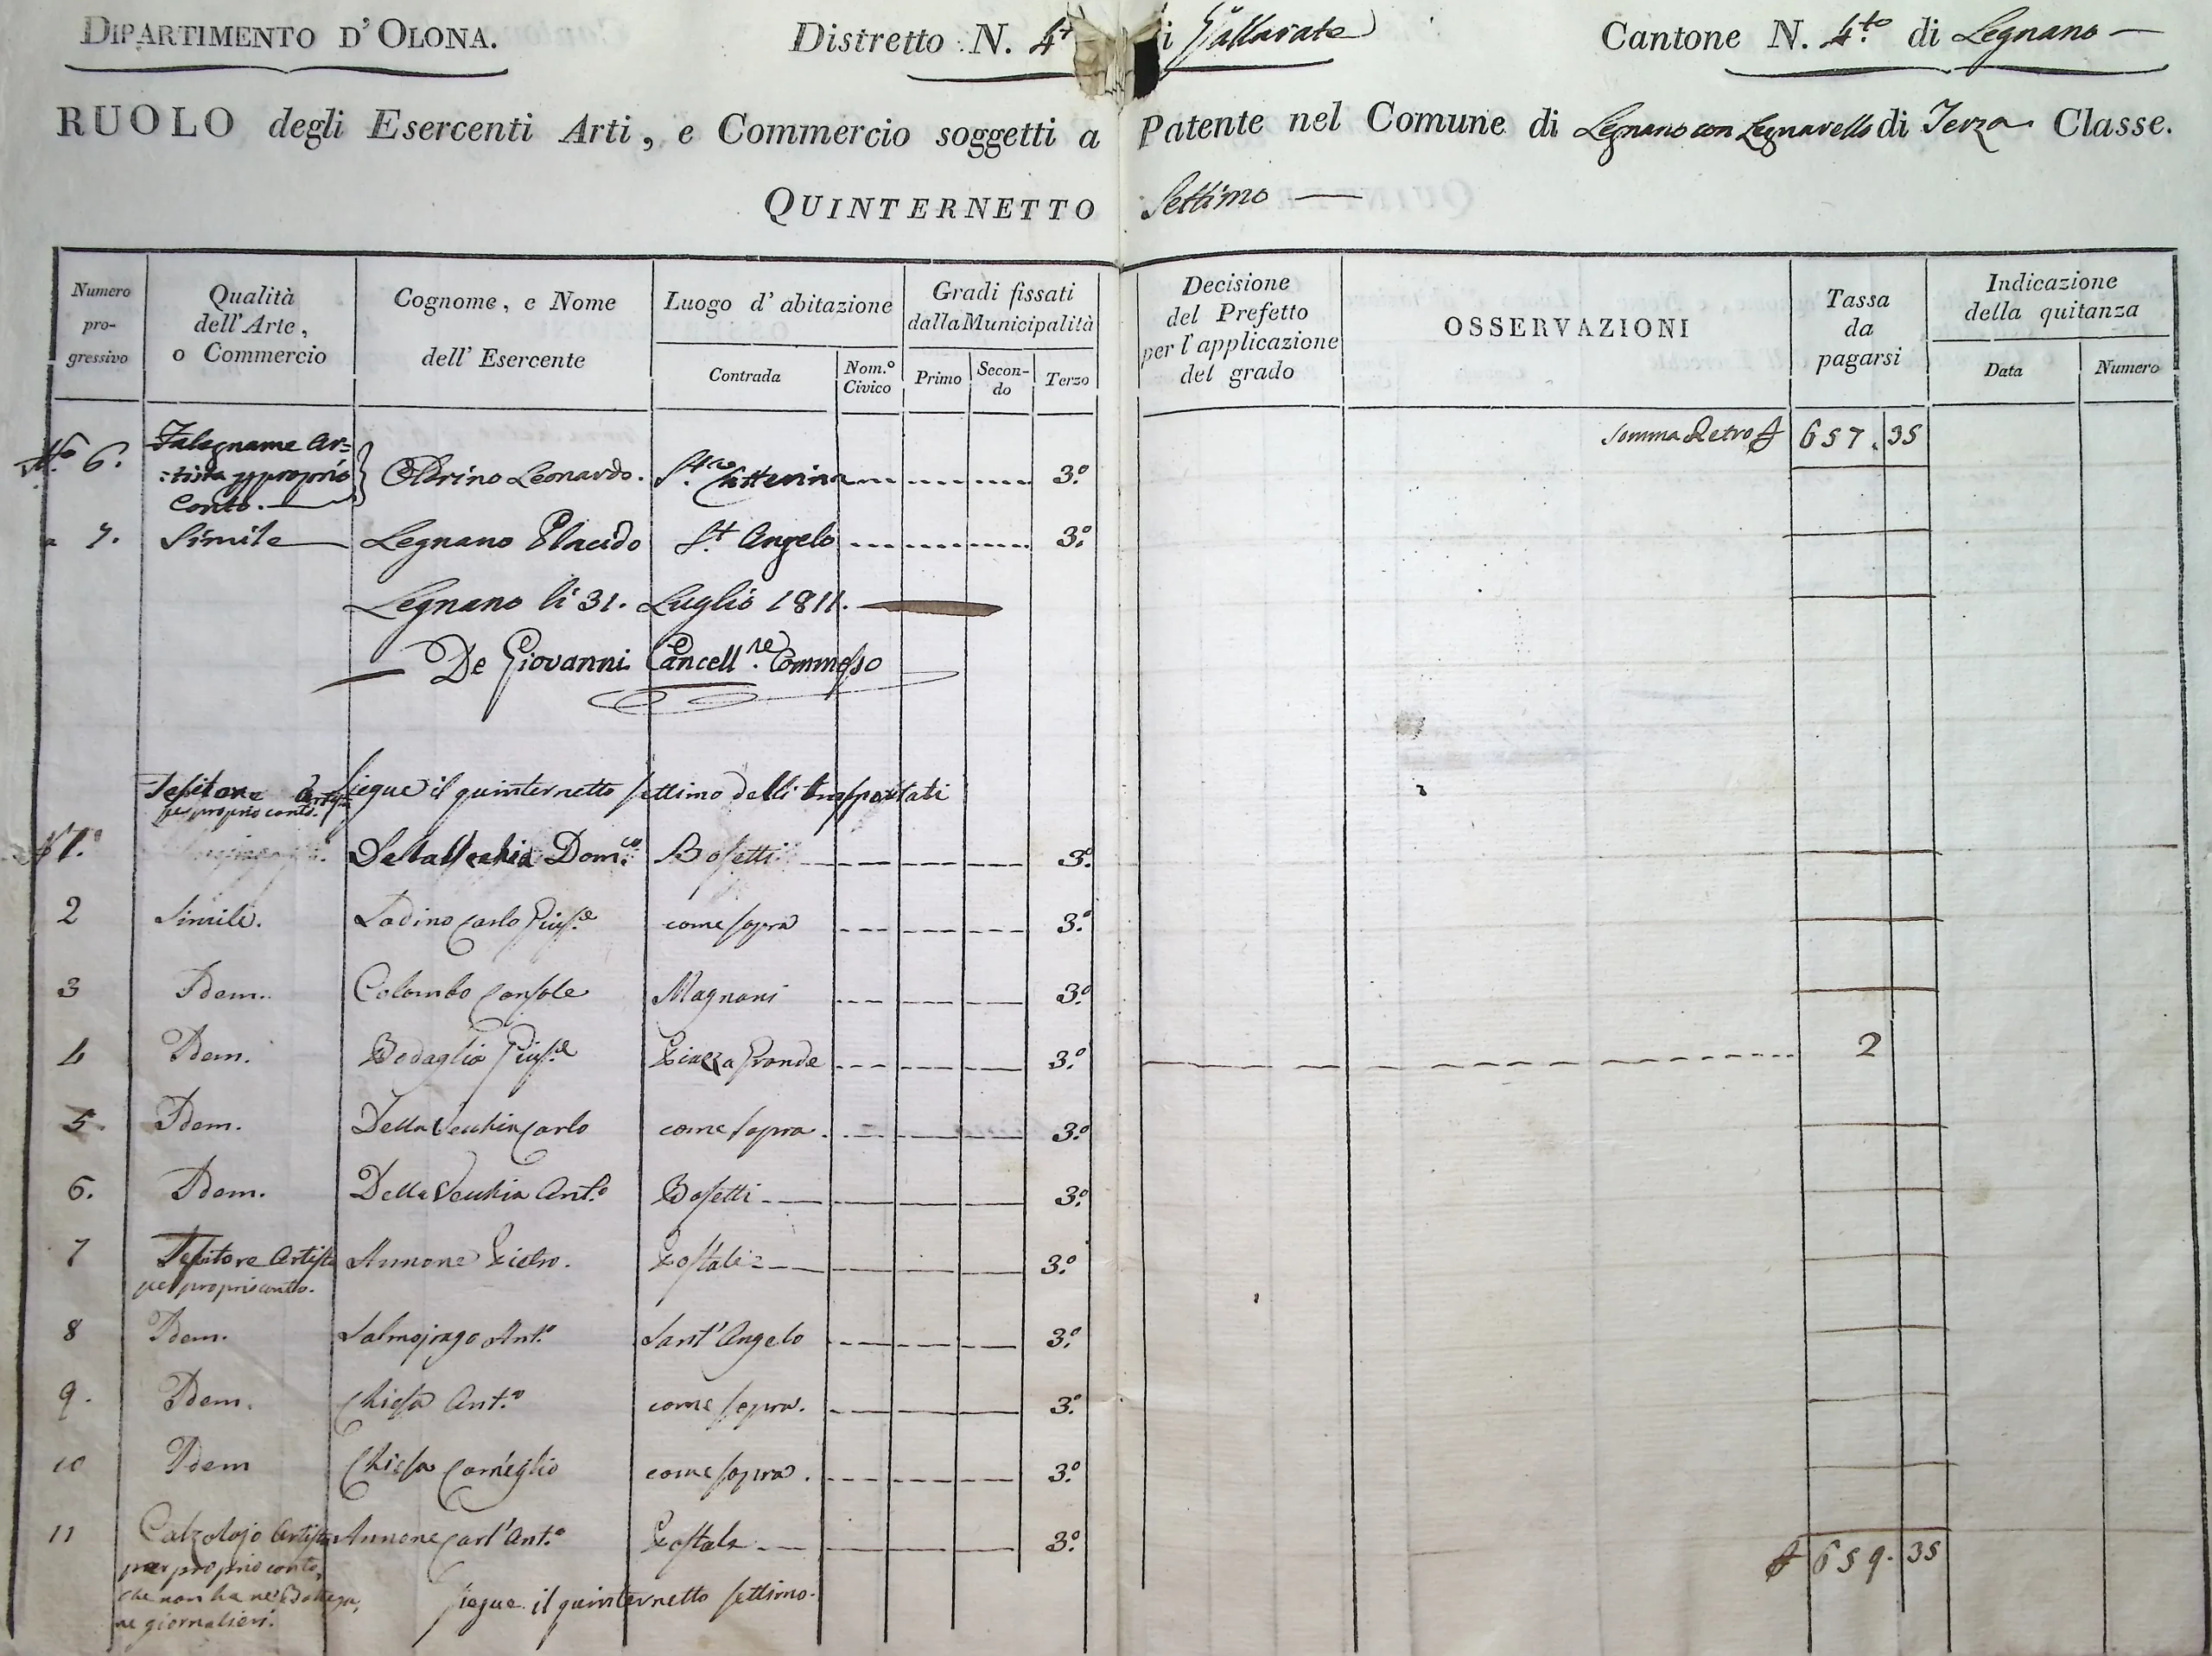 DIPARTIMENTO D'OLONA. Distretto N. 4t i Gallarate Cantone N. 4.to di Legnano —
RUOLO degli Esercenti Arti, e Commercio soggetti a Patente nel Comune di Legnano con Legnarello di Terza Classe.
QUINTERNETTO Settimo —
Numero progressivo
Qualità dell'Arte, o Commercio
Cognome, e Nome dell'Esercente
Luogo d'abitazione
Contrada
Nom.º Civico
Gradi fissati dalla Municipalità
Primo
Secondo
Terzo
Decisione del Prefetto per l'applicazione del grado
OSSERVAZIONI
Tassa da pagarsi
Indicazione della quitanza
Data
Numero
Somma Retro 657.35
6. Falegname Ar=
:tista p proprio
Conto. — Leonardo. S.ta Catterina 3.º
7. Simile Legnano Placido S.t Angelo 3.º
Legnano li 31. Luglio 1811.
De Giovanni Cancell.re Commesso
Siegue il quinternetto settimo delli trasportati
Tesitore Artista
per proprio conto.
1.º Della Vechia Dom.co Bosetti 3.º
2 Simile. Ladino Carlo Gius.e come sopra 3.º
3 Idem. Colombo Console Magnani 3.º
4 Idem. Bodaglia Gius.e Piazza Grande 3.º 2
5. Idem. Della Vechia Carlo come sopra. 3.º
6. Idem. Della Vechia Ant.o Bosetti 3.º
7 Tesitore Artista Annone Pietro. Postale 3.º
per proprio conto.
8 Idem. Salmojrago Ant.o Sant'Angelo 3.º
9. Idem. Chiesa Ant.o come sopra. 3.º
10 Idem Chiesa Corneglio come sopra. 3.º
11 Calzolajo Artista Annone Carl'Ant.o Postale 3.º
per proprio conto,
che non ha ne Bottega,
ne giornalieri.
Siegue il quinternetto settimo.
659.35